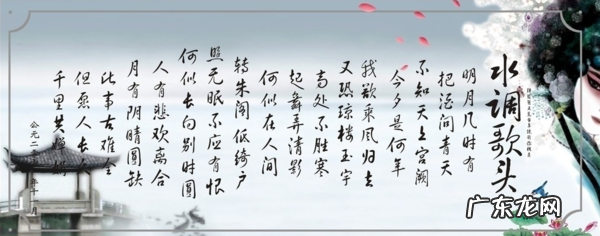 水调歌头
明月几时有
把酒问青天
不知天上宫阙
今夕是何年
我欲乘风归去
又恐琼楼玉宇
高处不胜寒
起舞弄清影
何似在人间
转朱阁低绮户
照无眠不应有恨
何似长向别时圆
人有悲欢离合
月有阴晴圆缺
此事古难全
但愿人长久
千里共
公元二
年十一月
广东龙网